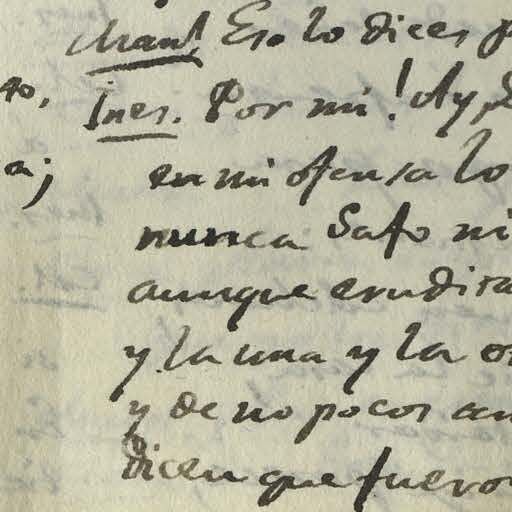 Man! Eso lo dices p
to,
Ines. Por mi! Ay, S
a;
en mi ofensa lo
nunca Safo ni
aunque erudita
y la una y la o
y de no pocos an
dicen que fuero